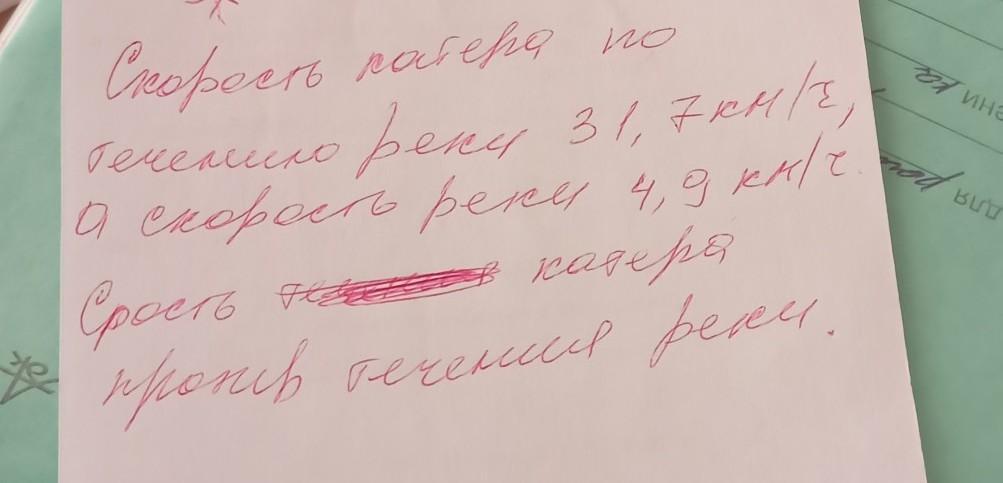 Скорость катера по
течению реки 31,7 км/ч,
а скорость реки 4,9 км/ч.
Срость катера
против течения реки.